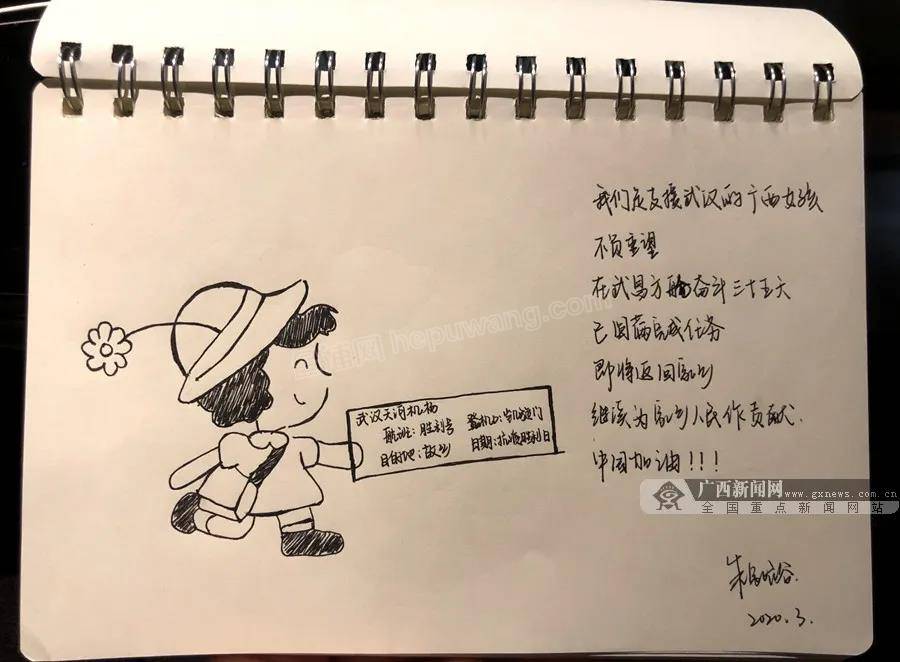 我们是支援武汉的广西女孩
不负重望
在武昌方舱奋斗三十五天
已圆满完成任务
即将返回家乡
继续为家乡人民作贡献.
中国加油!!!
武汉天河机场
航班:胜利号
登机口:凯旋门
目的地:故乡
日期:抗疫胜利日
hepuwang.com
广西新闻网
www.gxnews.com.cn
全国重点新闻网站
2020.3.